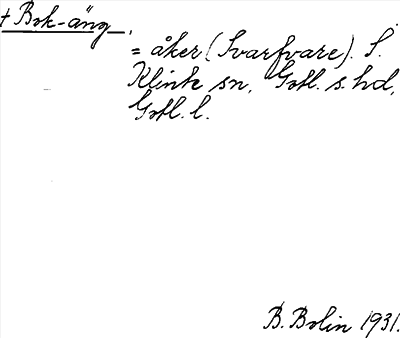 + Bok-äng,
= åker (Svarfvare). S.
Klinte sn, Gotl. s. hd,
Gotl. l.
B. Bolin 1931.